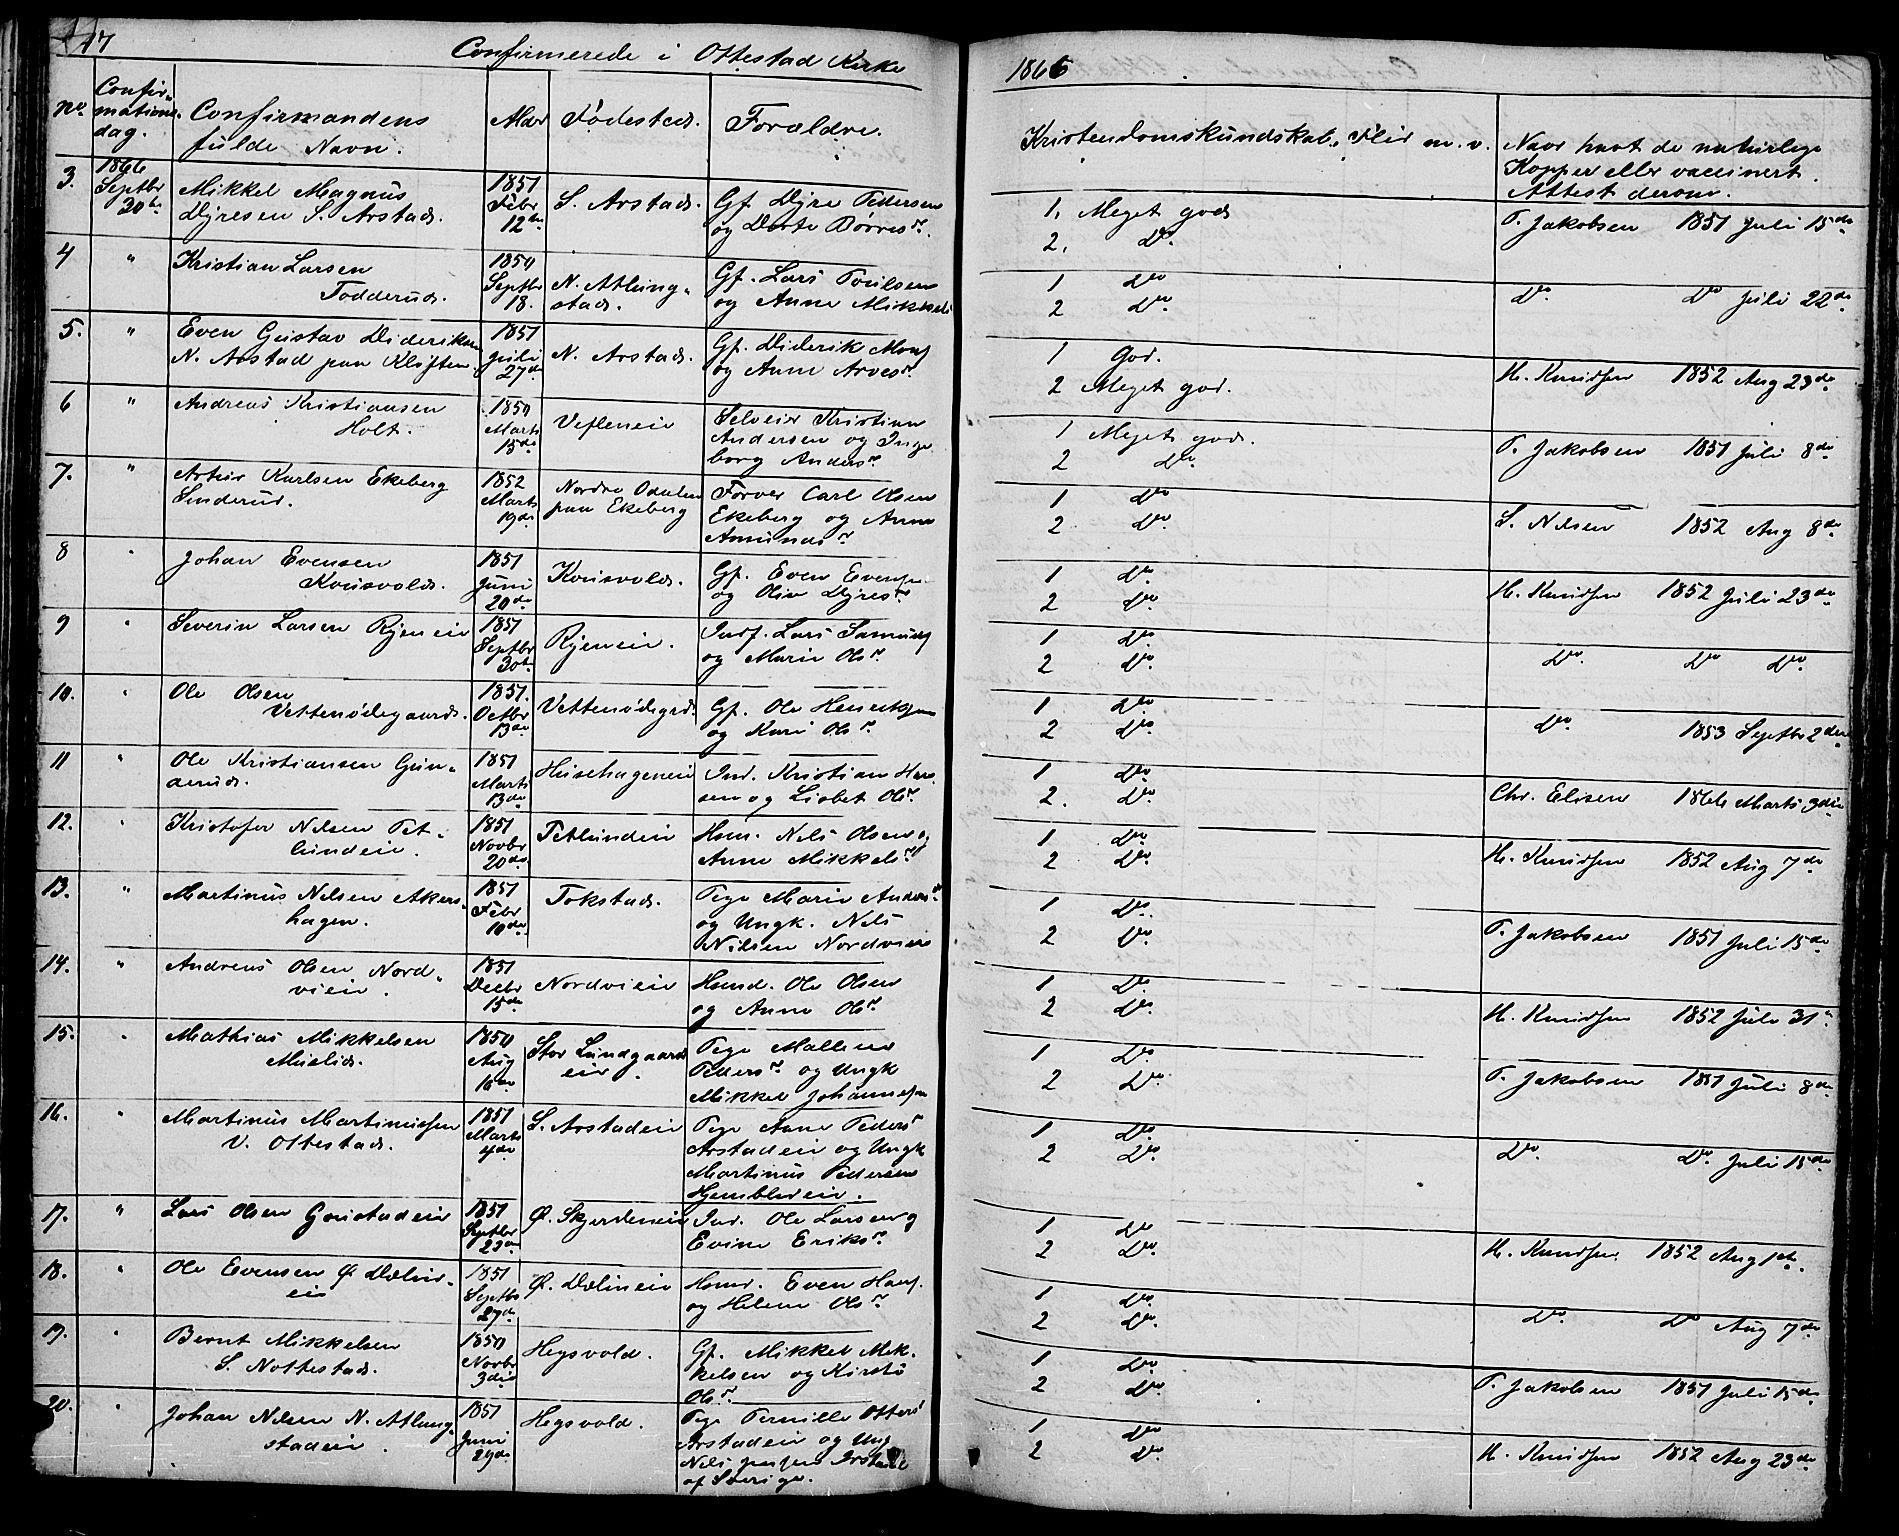 117
Confirmerede i Ottestad Kirke 1866
No. Confirmations dag. Confirmandens fulde Navn. Alder Fødested. Forældre. Kristendomskundskab, Flid m. v. Naar havt de naturlige Kopper eller vaccinert. Attest derom.
3. 1866 Septbr 30te Mikkel Magnus Dyresen S. Arstad. 1851 Febr 12te S. Arstad. Gf. Dyre Pedersen og Dorte Børresr. 1. Meget god 2. Do. T. Jakobsen 1851 Juli 15de
4 " Kristian Larsen Todderud. 1850 Septbr 18. N. Atlungstad. Gf. Lars Poulsen og Anne Mikkels 1 Do 2 Do. Do. Do Juli 22de
5. " Even Gustav Dideriksen N. Arstad paa Kløften 1851 Juli 27de N. Arstad. Gf. Diderik Mons og Anne Arvesr. 1 God. 2 Meget god. H. Knudsen 1852 Aug 23de
6 " Andreas Kristiansen Holt. 1850 Marts 15de Vefleneie Selveier Kristian Andersen og Ingeborg Andersr. 1 Meget god. 2 Do. T. Jakobsen 1851 Juli 8de
7. " Artur Karlsen Ekeberg Sinderud. 1852 Marts 19de Nordre Odalen paa Ekeberg Farver Carl Olsen Ekeberg og Anne Amundsr. 1 Do 2 Do. S. Nilsen 1852 Aug 8de
8 " Johan Evensen Kvisvold. 1851 Juni 20de Kvisvold. Gf. Even Evensen og Olia Dyresr. 1 Do 2 Do. H. Knudsen 1852 Juli 23de
9 " Severin Larsen Ryeneie 1851 Septbr 30te Ryeneie. Inds. Lars Samuels og Marie Olsr. 1 Do. 2 Do. Do. Do Do.
10. " Ole Olsen Vettenødegaard. 1851. Octbr 13de Vettenødegrd. Gf. Ole Henriksen og Kari Olsr. 1 Do. 2 Do. Do. 1853 Septbr 2den
11 " Ole Kristiansen Gunnerud. 1851 Marts 13de Husehageneie Ind. Kristian Hansen og Lisbet Olsr. 1 Do. 2. Do. Chr. Elisen 1866 Marts 3die
12. " Kristofer Nilsen Tetlundeie. 1851 Novbr 20de Tetlundeie Hsm. Nils Olsen og Anne Mikkelsr. 1 Do 2 Do. H. Knudsen 1852 Aug 7de
13. " Martinus Nilsen Akershagen. 1851 Febr 10de Tokstad. Pige Marie Andersr og Ungk. Nils Nilsen Nordvieie 1 Do. 2 Do. T. Jakobsen 1851 Juli 15de
14. " Andreas Olsen Nordvieie. 1851 Decbr 15de Nordvieie Hsmd. Ole Olsen og Anne Olsr. 1 Do. 2 Do. H. Knudsen 1852 Juli 31te
15. " Mathias Mikkelsen Muelid. 1850 Aug 10de Stor Lundgaardseie. Pige Mallene Pedersr og Ungk Mikkel Johannesen 1 Do. 2 Do. T. Jakobsen 1851 Juli 8de
16. " Martinus Martinussen V. Ottestad. 1851 Marts 4de S. Arstadeie Pige Anne Pedersr Arstadeie og Ungk Martinus Pedersen Hjembleieie. 1 Do. 2 Do. Do. Do. Juli 15de
17. " Lars Olsen Goustadeie 1851 Septbr 23de Ø. Skjerdeneie Ind. Ole Larsen og Evine Eriksr. 1 Do 2 Do. H. Knudsen 1852 Aug 1ste.
18. " Ole Evensen Ø. Dælineie 1851 Septbr 27de Ø. Dælineie Hsmd. Even Hans. og Helene Olsr. 1 Do. 2 Do. Do. Do Aug 7de
19. " Bernt Mikkelsen S. Nøttestad. 1850 Novbr 3die Hegsvold. Gf. Mikkel Mikkelsen og Kirsti Olsr. 1 Do 2 Do. T. Jakobsen 1851 Juli 15de
20. " Johan Nilsen N. Atlungstadeie. 1851 Juni 29de Hegsvold. Pige Pernille Ottersr Arstadeie og Ung Nils af Sverige. 1 Do 2 Do. H. Knudsen 1852 Aug 23de